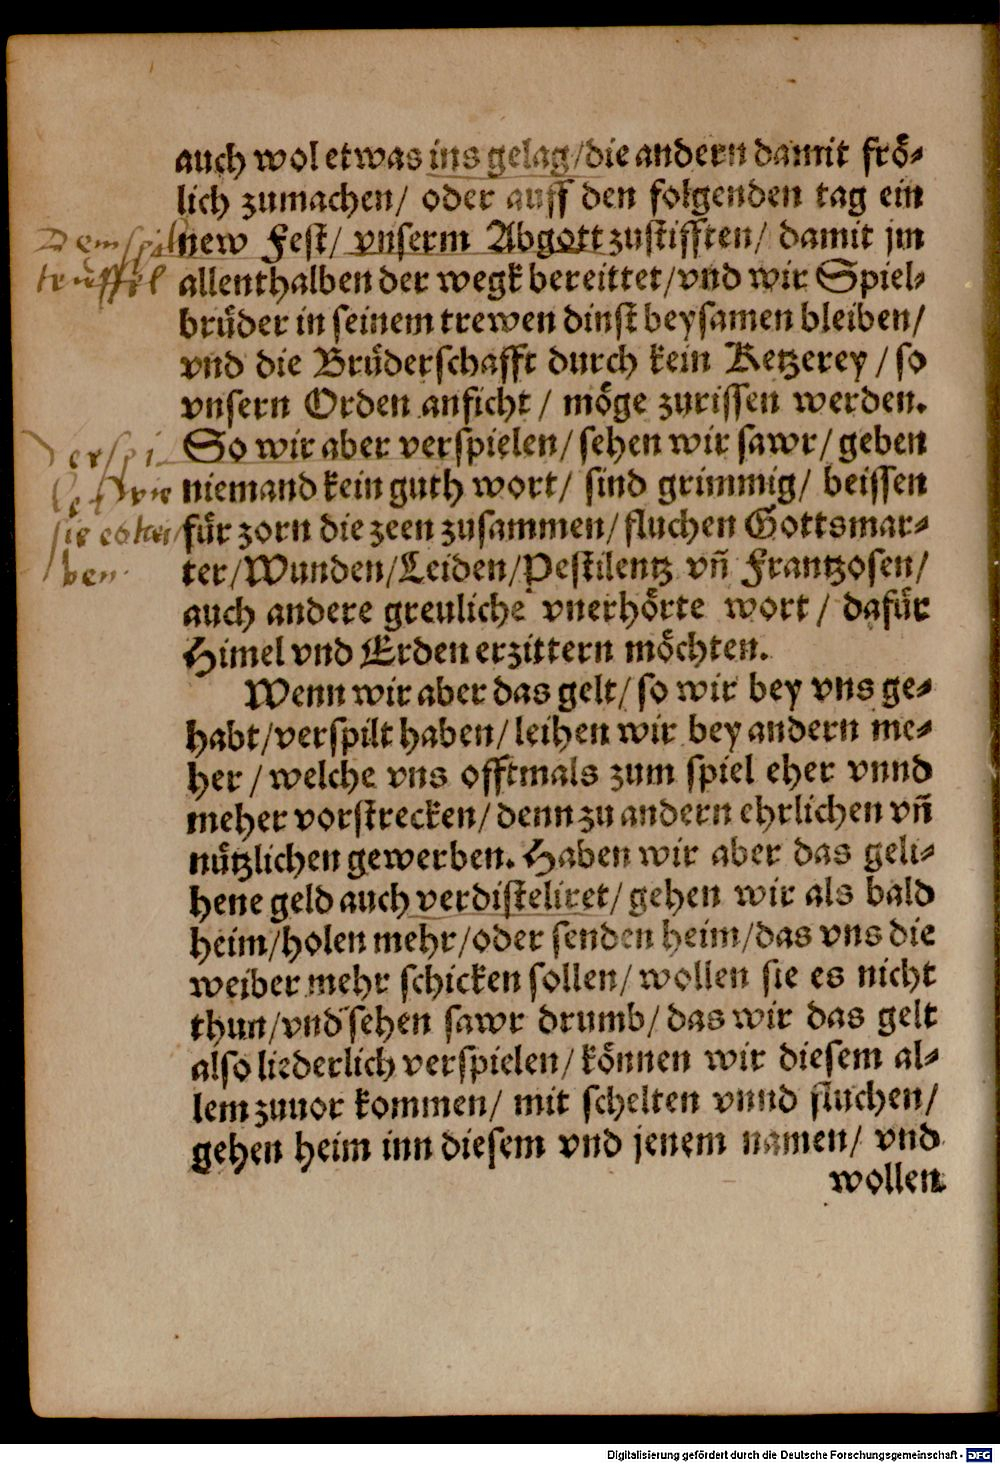 auch wol etwas ins gelag/die andern damit frö-
lich zumachen/ oder auff den folgenden tag ein
new Fest/ vnserm Abgott zustifften/ damit jm
allenthalben der wegk bereittet/vnd wir Spiel-
brüder in seinem trewen dinst beysamen bleiben/
vnd die Brüderschafft durch kein Ketzerey / so
vnsern Orden anficht / möge zurissen werden.
So wir aber verspielen/ sehen wir sawr/ geben
niemand kein guth wort/ sind grimmig/ beissen
für zorn die zeen zusammen/ fluchen Gottsmar-
ter/Wunden/Leiden/Pestilentz vñ Frantzosen/
auch andere greuliche vnerhörte wort / dafür
Himel vnd Erden erzittern möchten.
Wenn wir aber das gelt/ so wir bey vns ge-
habt/verspilt haben/ leihen wir bey andern me-
her / welche vns offtmals zum spiel eher vnnd
meher vorstrecken/ denn zu andern ehrlichen vñ
nützlichen gewerben. Haben wir aber das geli-
hene geld auch verdisteliret/ gehen wir als bald
heim/holen mehr/oder senden heim/das vns die
weiber mehr schicken sollen/ wollen sie es nicht
thun/vnd sehen sawr drumb/ das wir das gelt
also liederlich verspielen/ können wir diesem al-
lem zuuor kommen/ mit schelten vnnd fluchen/
gehen heim inn diesem vnd jenem namen/ vnd
wollen
Dem spil
teuffel
Der spi
sie
ben
Digitalisierung gefördert durch die Deutsche Forschungsgemeinschaft - DFG